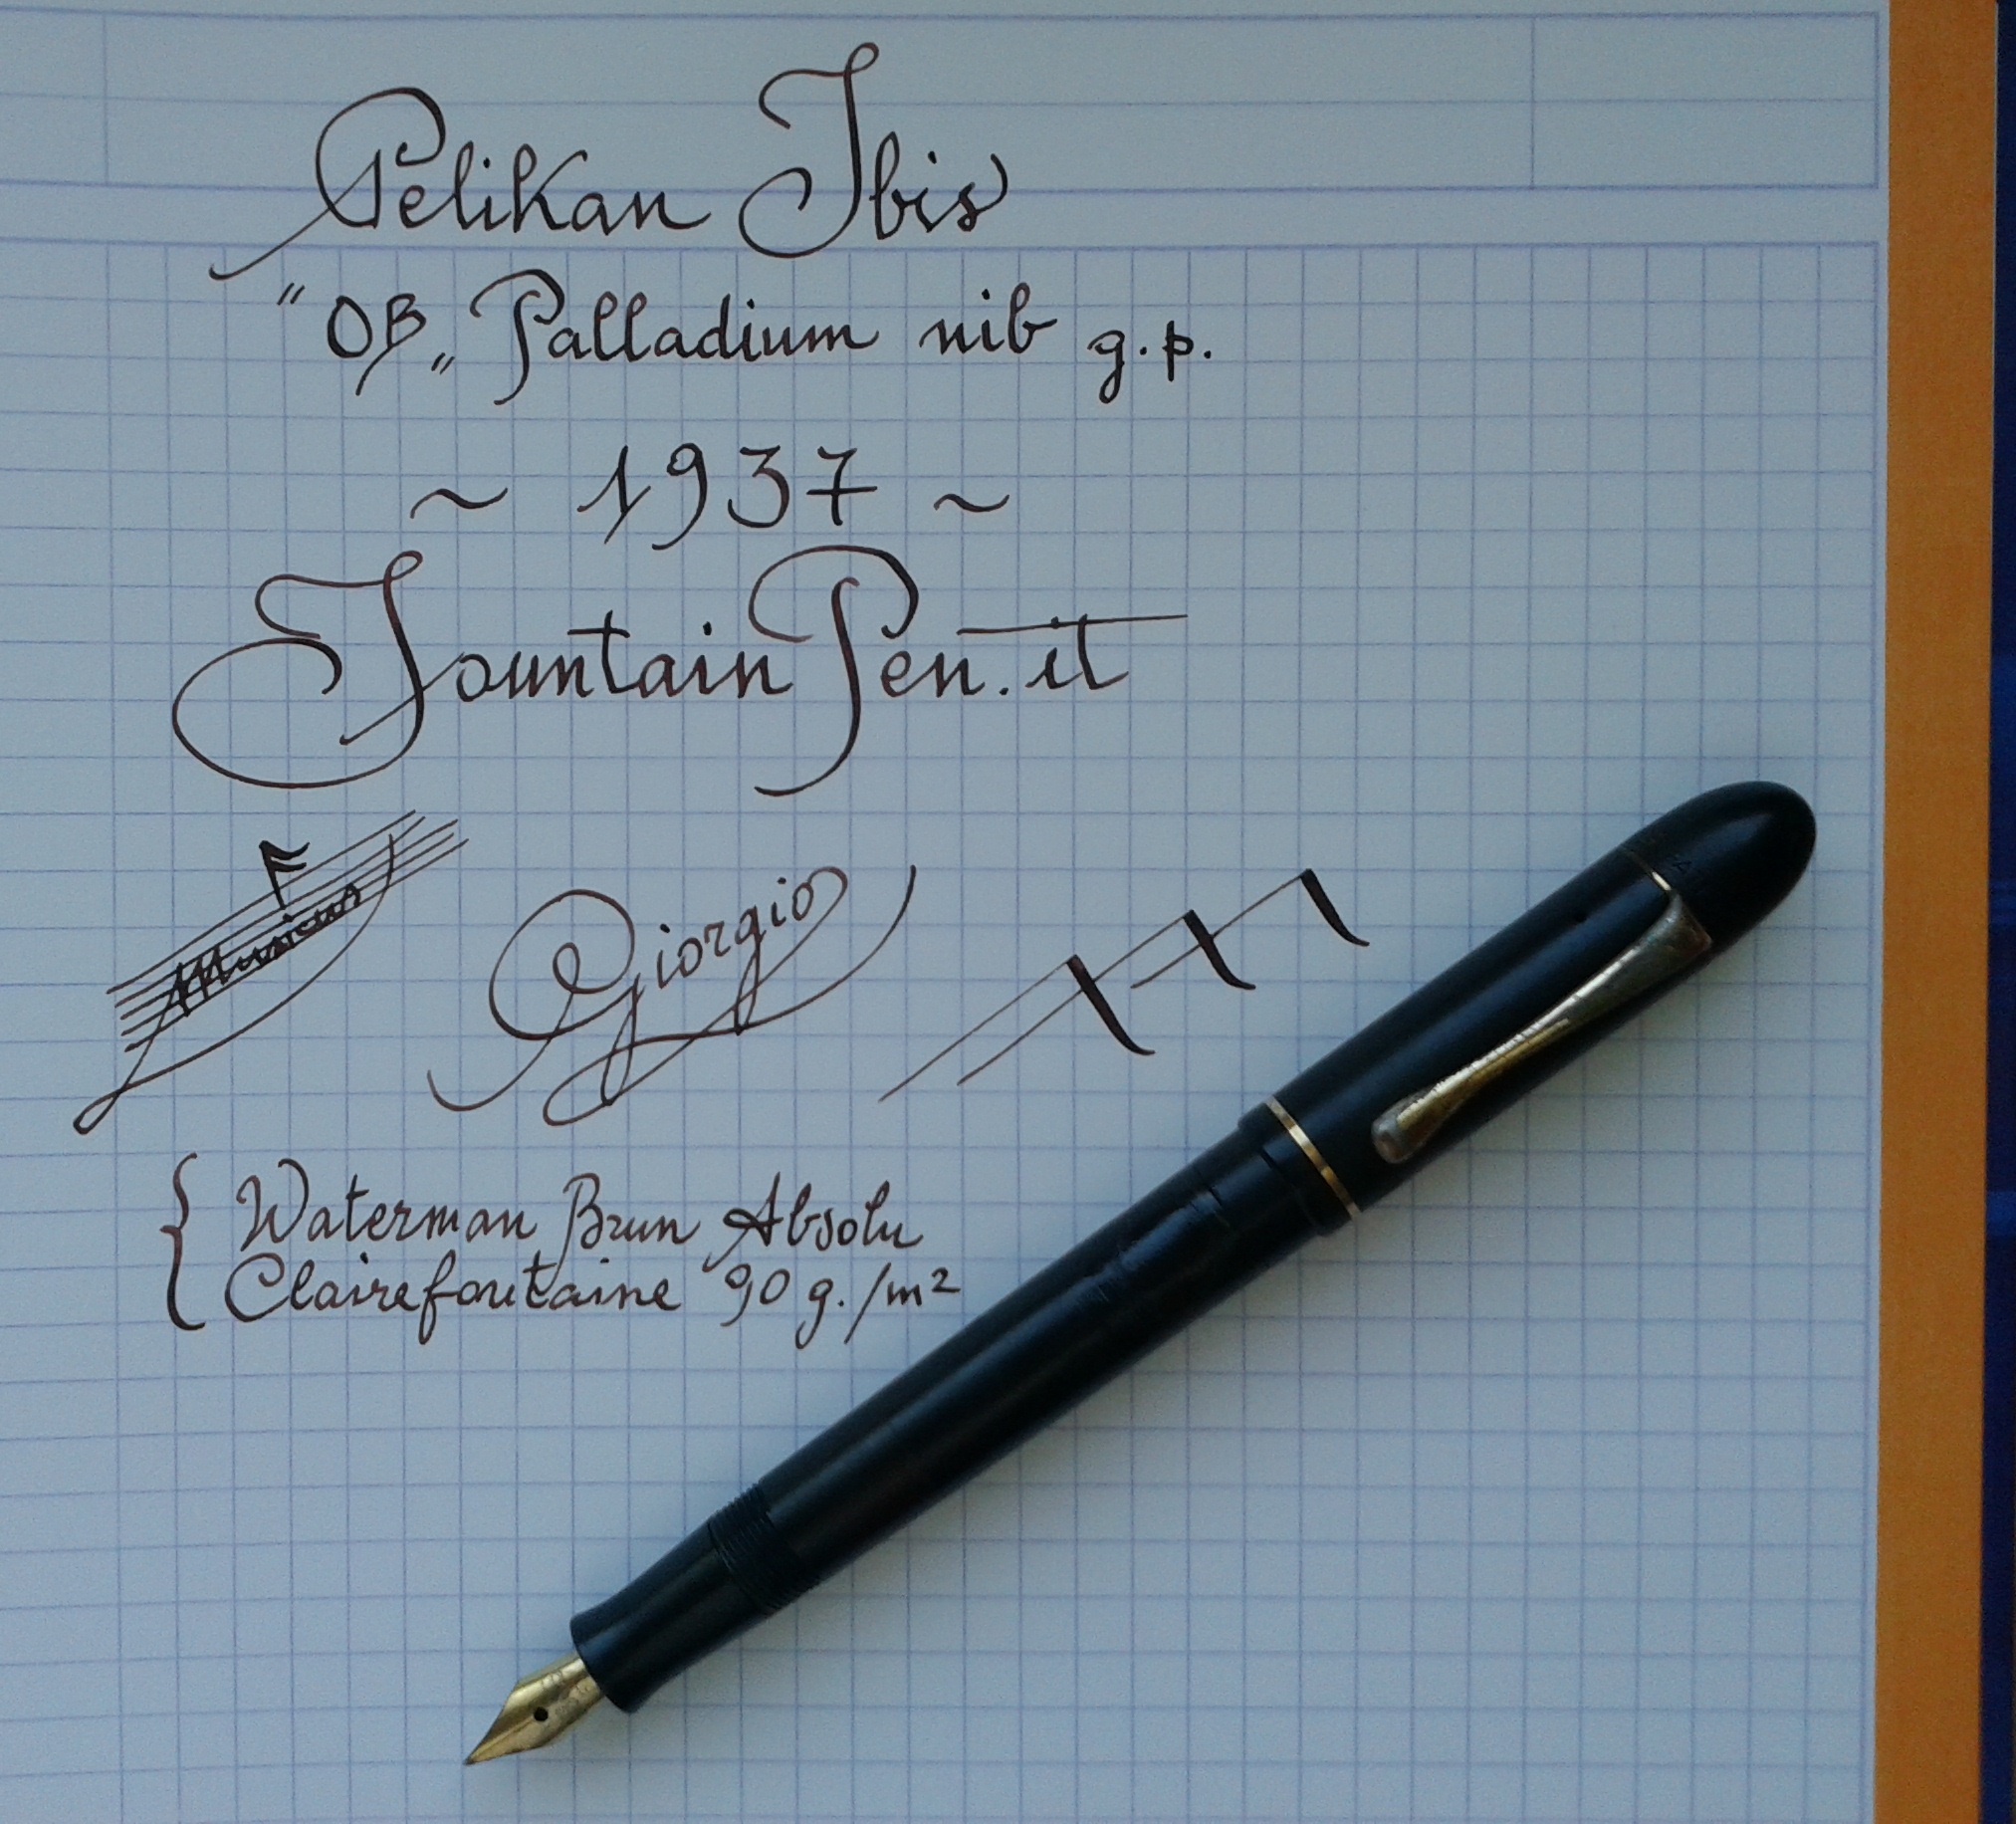 Pelikan Ibis
"OB„ Palladium nib g.p.
~ 1937 ~
FountainPen.it
Musicus
Giorgio
{ Waterman Brun Absolu
Clairefontaine 90 g./m²